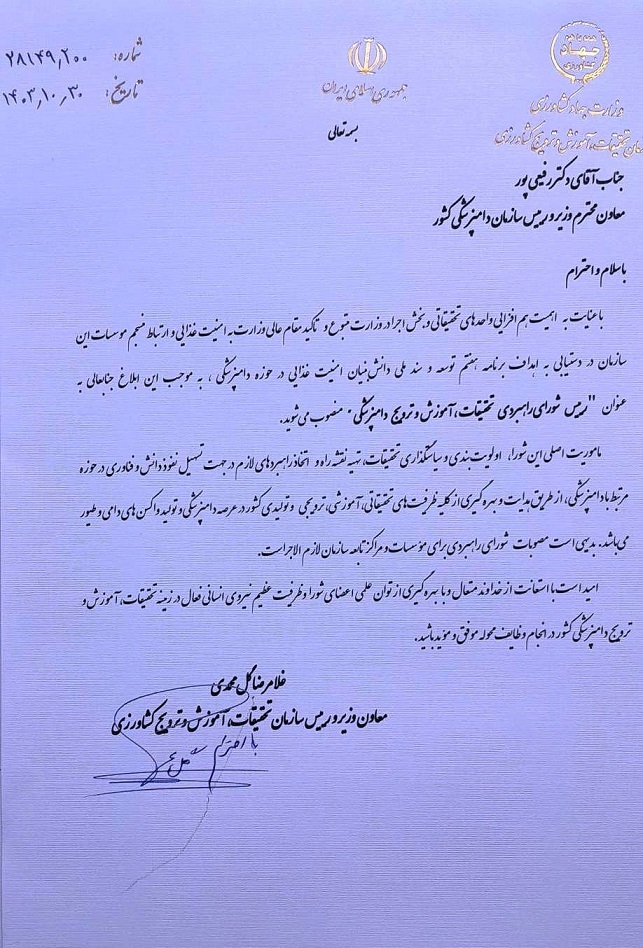 جهاد
کشاورزی
وزارت جهاد کشاورزی
تحقیقات، آموزش و ترویج کشاورزی
جمهوری اسلامی ایران
شماره: ۲۸۱۴۹٫۲۰۰
تاریخ: ۱۴۰۳٫۱۰٫۳۰
بسمه تعالی
جناب آقای دکتر رفیعی پور
معاون محترم وزیر و رییس سازمان دامپزشکی کشور
با سلام و احترام
با عنایت به اهمیت هم افزایی واحدهای تحقیقاتی و بخش اجرا در وزارت متبوع و تاکید مقام عالی وزارت به امنیت غذایی و ارتباط منسجم موسسات این
سازمان در دستیابی به اهداف برنامه هفتم توسعه و سند ملی دانش بنیان امنیت غذایی در حوزه دامپزشکی ، به موجب این ابلاغ جنابعالی به
عنوان "رییس شورای راهبردی تحقیقات، آموزش و ترویج دامپزشکی" منصوب می شوید.
ماموریت اصلی این شورا، اولویت بندی و سیاستگذاری تحقیقات، تهیه نقشه راه و اتخاذ راهبردهای لازم در جهت تسهیل نفوذ دانش و فناوری در حوزه
مرتبط با دامپزشکی، از طریق هدایت و بهره گیری از کلیه ظرفیت های تحقیقاتی، آموزشی، ترویجی و تولیدی کشور در عرصه دامپزشکی و تولید واکسن های دامی و طیور
می باشد. بدیهی است مصوبات شورای راهبردی برای مؤسسات و مراکز تابعه سازمان لازم الاجراست.
امید است با استعانت از خداوند متعال و با بهره گیری از توان علمی اعضای شورا و ظرفیت عظیم نیروی انسانی فعال در زمینه تحقیقات، آموزش و
ترویج دامپزشکی کشور در انجام وظایف محوله موفق و مؤید باشید.
غلامرضا گل محمدی
معاون وزیر و رییس سازمان تحقیقات، آموزش و ترویج کشاورزی
با احترام